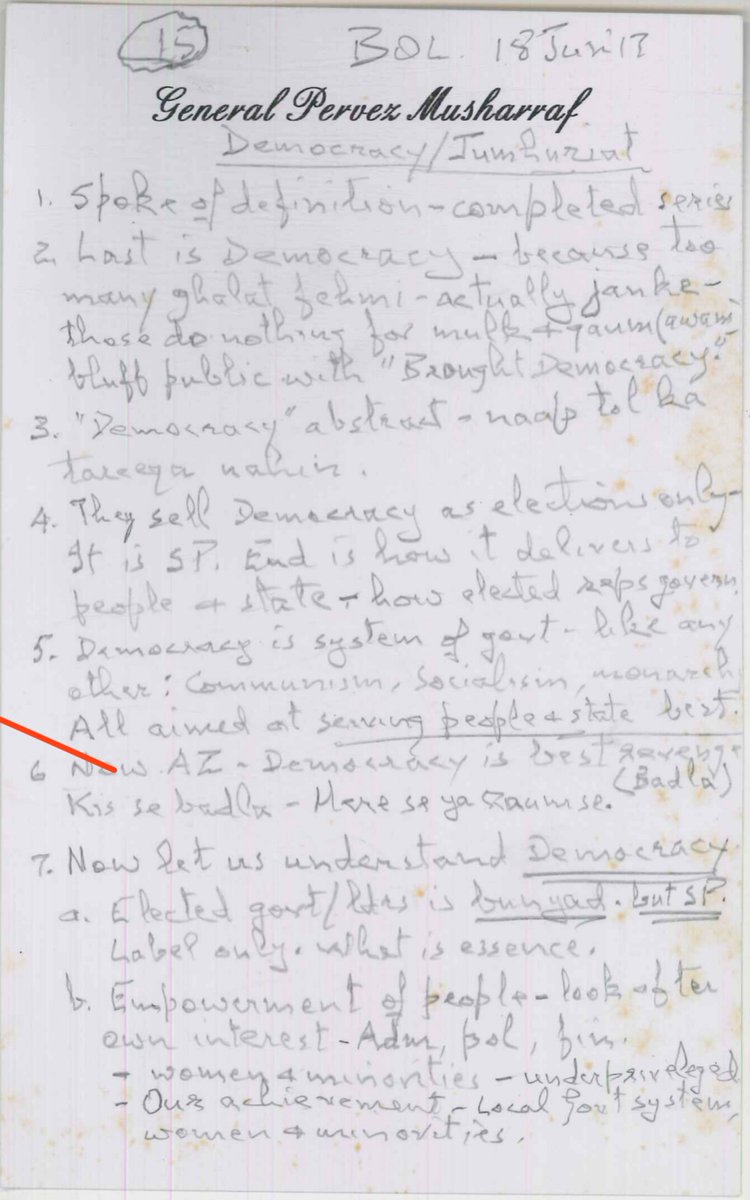 15
BOL. 18 Jun 17
General Pervez Musharraf
Democracy/Jumhuriat
1. Spoke of definition - completed series
2. Last is Democracy - because too
many ghalat fehmi - actually janke -
those do nothing for mulk & qaum (awam)
bluff public with "Brought Democracy."
3. "Democracy" abstract - naap tol ka
tareeqa nahin.
4. They sell Democracy as elections only -
It is SP. End is how it delivers to
people & state - how elected reps govern.
5. Democracy is system of govt - like any
other: Communism, Socialism, monarch
All aimed at serving people & state best.
6 Now AZ - Democracy is best revenge
(Badla)
Kis se badla - Mere se ya Qaum se.
7. Now let us understand Democracy
a. Elected govt/ldrs is bunyad. but SP.
Label only. What is essence.
b. Empowerment of people - look after
own interest - Adm, pol, fin.
- women & minorities - underpriveleged
- Our achievement - Local Govt system,
women & minorities.